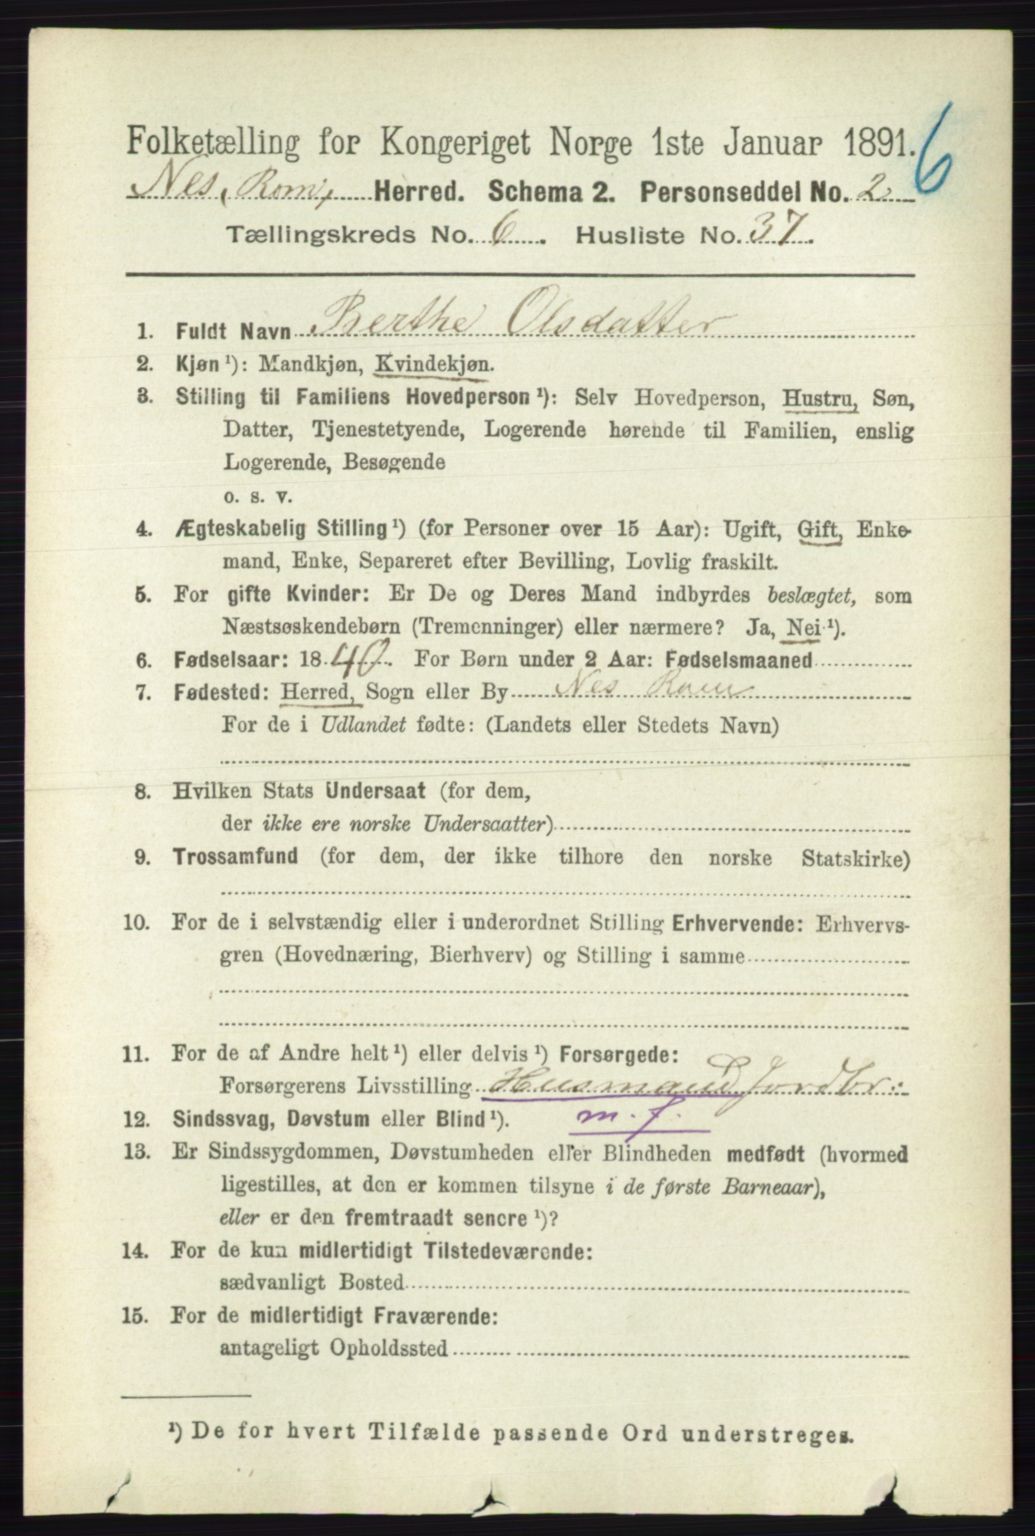 6
Folketælling for Kongeriget Norge 1ste Januar 1891.
Nes, Rom., Herred. Schema 2. Personseddel No. 2
Tællingskreds No. 6. Husliste No. 37.
1. Fuldt Navn Berthe Olsdatter
2. Kjøn ¹): Mandkjøn, Kvindekjøn.
3. Stilling til Familiens Hovedperson ¹): Selv Hovedperson, Hustru, Søn,
Datter, Tjenestetyende, Logerende hørende til Familien, enslig
Logerende, Besøgende
o. s. v.
4. Ægteskabelig Stilling ¹) (for Personer over 15 Aar): Ugift, Gift, Enke-
mand, Enke, Separeret efter Bevilling, Lovlig fraskilt.
5. For gifte Kvinder: Er De og Deres Mand indbyrdes beslægtet, som
Næstsøskendebørn (Tremenninger) eller nærmere? Ja, Nei ¹).
6. Fødselsaar: 1840. For Børn under 2 Aar: Fødselsmaaned
7. Fødested: Herred, Sogn eller By Nes Rom
For de i Udlandet fødte: (Landets eller Stedets Navn)
8. Hvilken Stats Undersaat (for dem,
der ikke ere norske Undersaatter)
9. Trossamfund (for dem, der ikke tilhore den norske Statskirke)
10. For de i selvstændig eller i underordnet Stilling Erhvervende: Erhvervs-
gren (Hovednæring, Bierhverv) og Stilling i samme
11. For de af Andre helt ¹) eller delvis ¹) Forsørgede:
Forsørgerens Livsstilling Husmand Jordbr:
12. Sindssvag, Døvstum eller Blind ¹). m. f.
13. Er Sindssygdommen, Døvstumheden eller Blindheden medfødt (hvormed
ligestilles, at den er kommen tilsyne i de første Barneaar),
eller er den fremtraadt senere ¹)?
14. For de kun midlertidigt Tilstedeværende:
sædvanligt Bosted
15. For de midlertidigt Fraværende:
antageligt Opholdssted
¹) De for hvert Tilfælde passende Ord understreges.